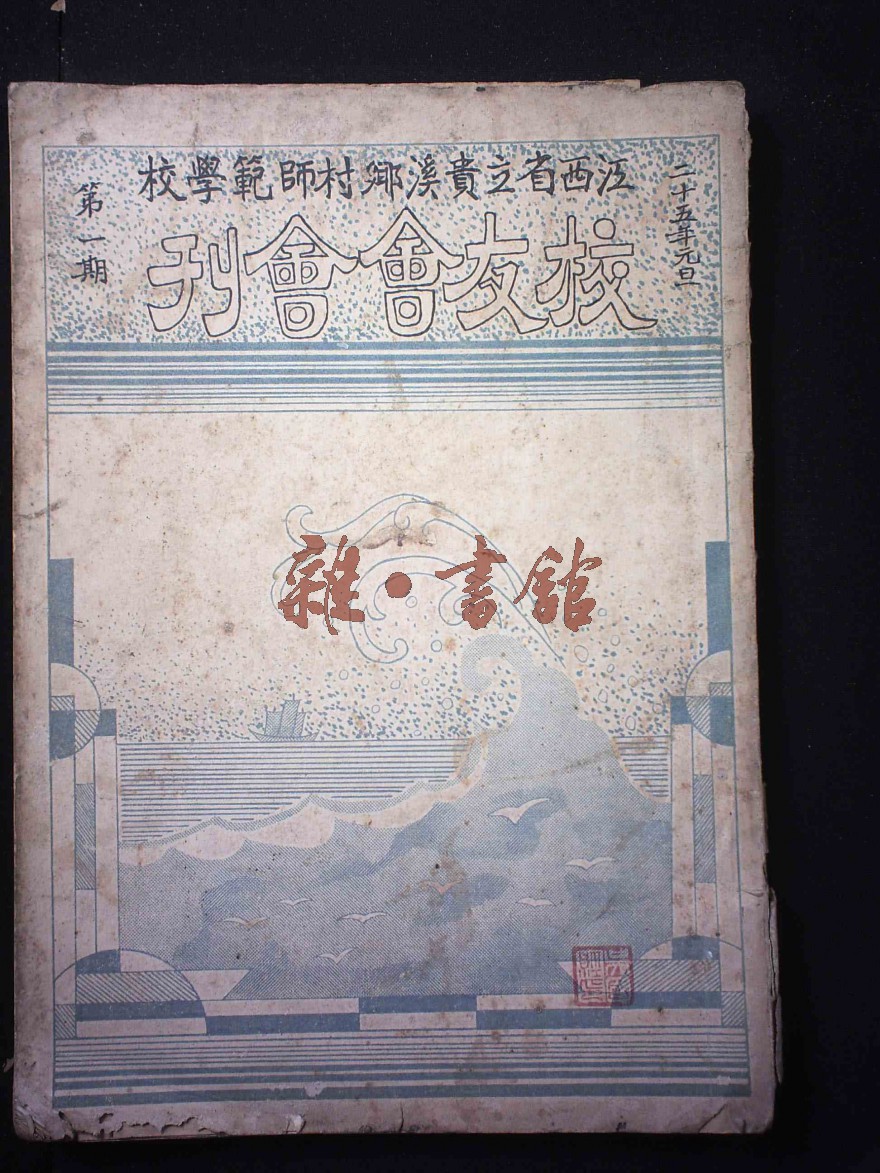 江西省立貴溪鄉村師範學校
校友會會刊
二十五年元旦
第一期
雜·書館